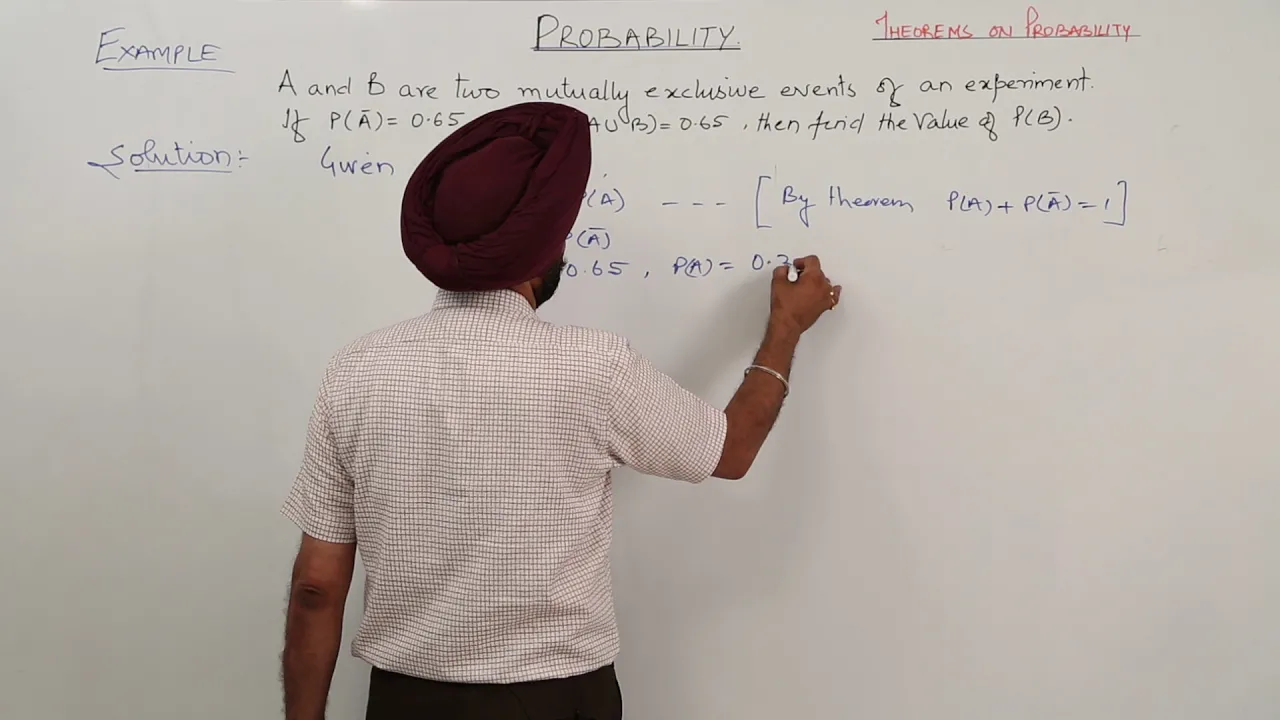 EXAMPLE
PROBABILITY.
THEOREMS ON PROBABILITY
A and B are two mutually exclusive events of an experiment.
If P(Ā) = 0.65 A∪B) = 0.65, then find the value of P(B).
Solution:- Given
P(A) --- [By theorem P(A) + P(Ā) = 1]
P(Ā)
0.65, P(A) = 0.3